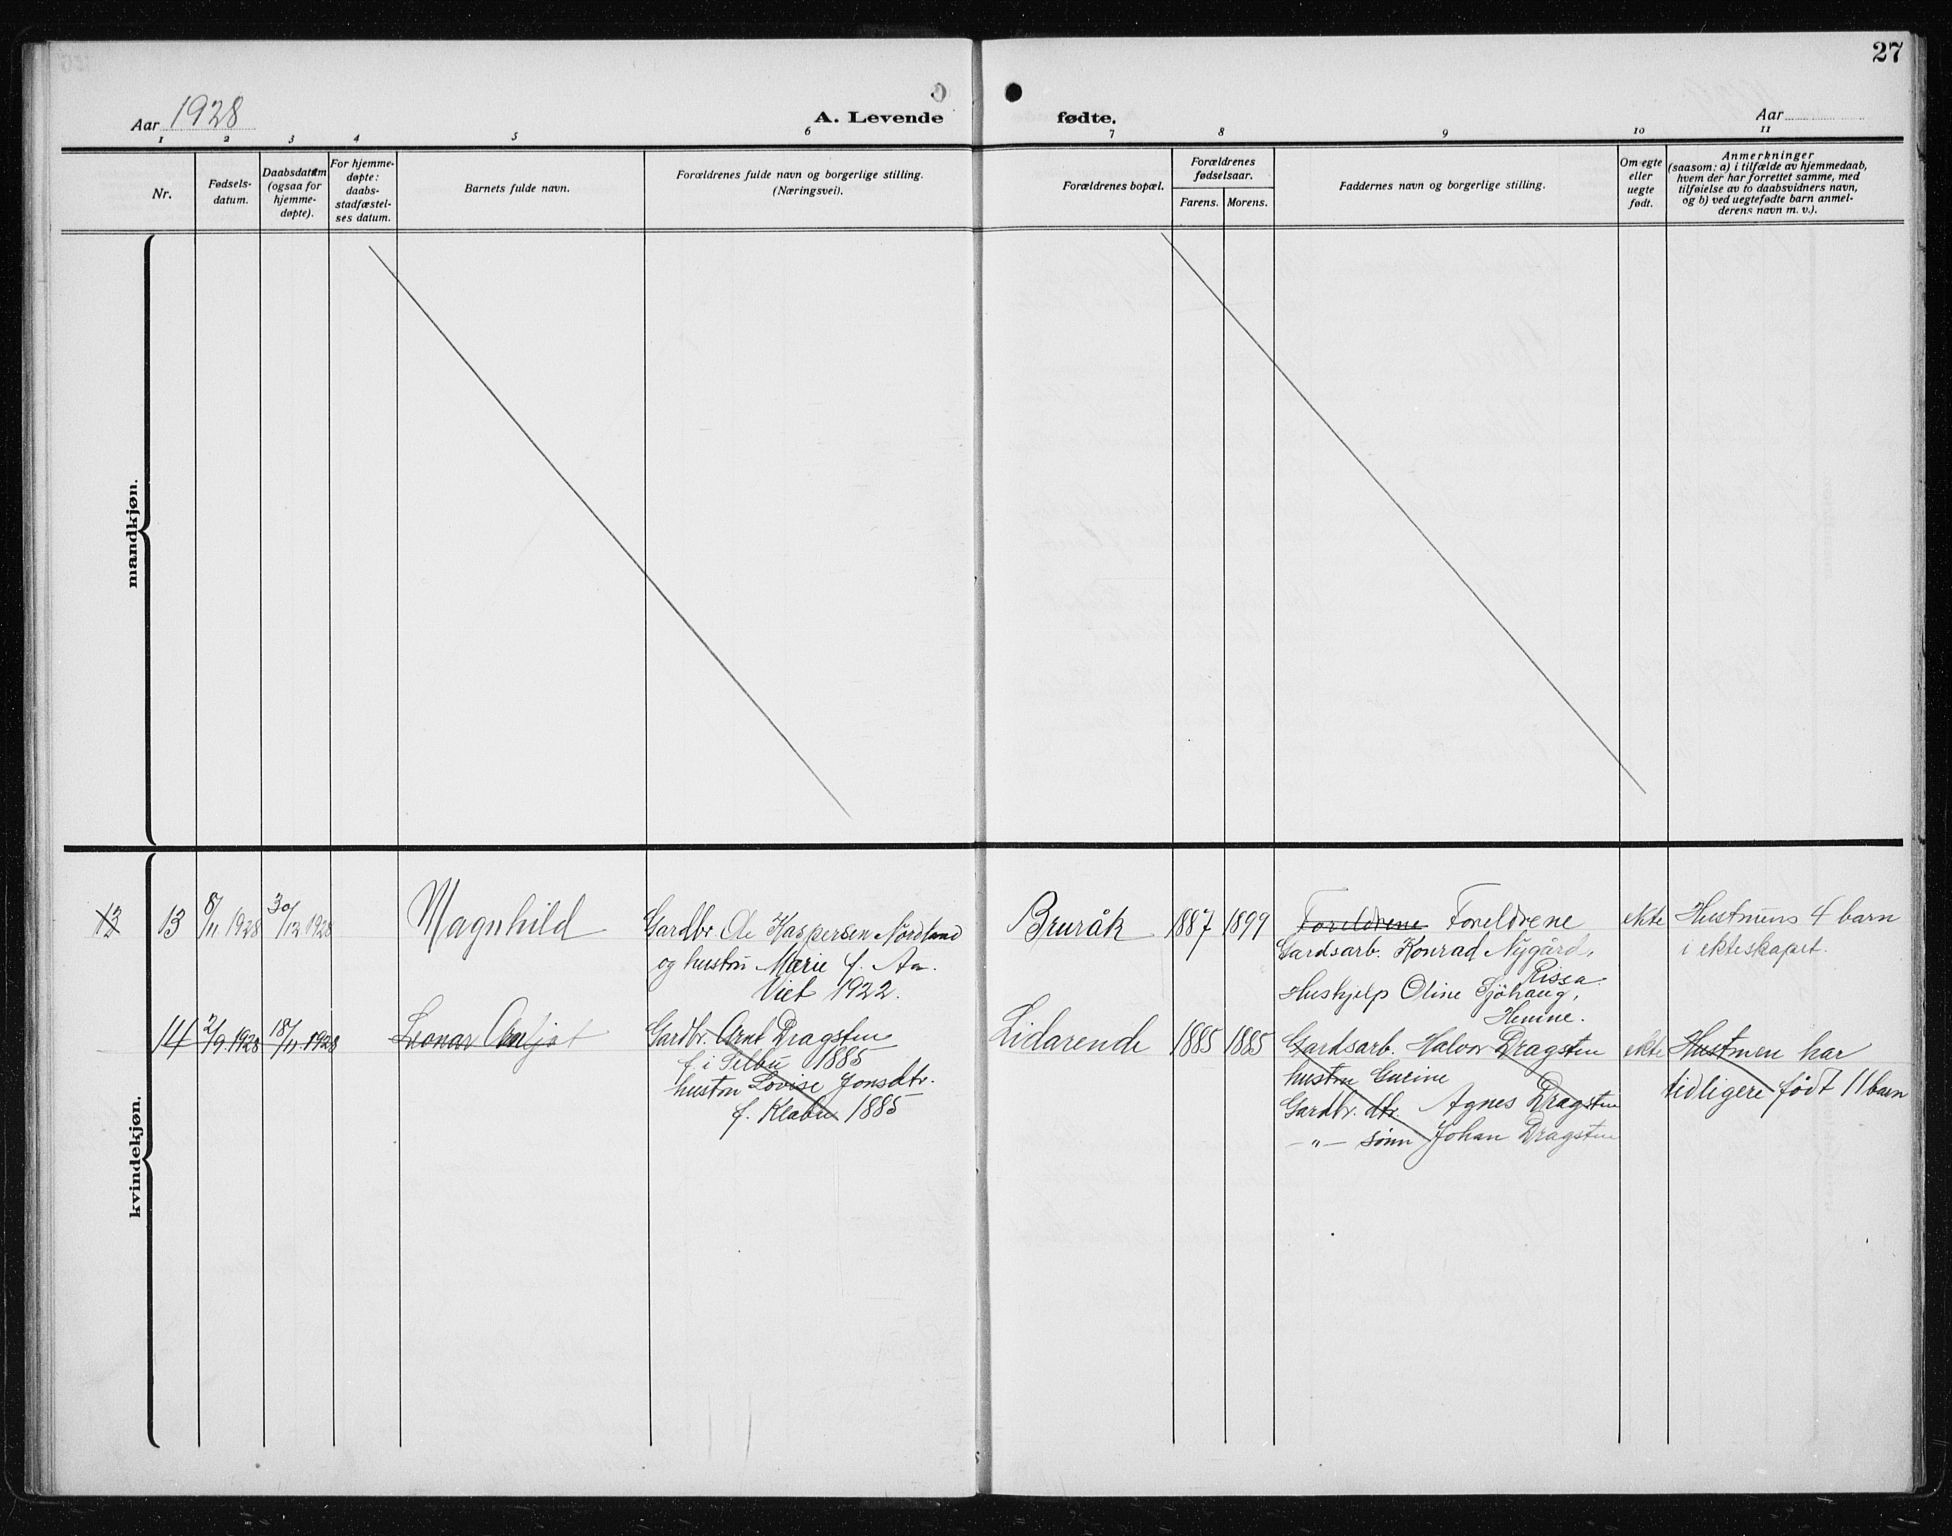 27
Aar 1928
A. Levende
fødte.
Aar
1 2 3 4 5 6 7 8 9 10 11
Nr.
Fødsels-
datum.
Daabsdatum
(ogsaa for
hjemme-
døpte).
For hjemme-
døpte:
daabs-
stadfæstel-
ses datum.
Barnets fulde navn.
Forældrenes fulde navn og borgerlige stilling.
(Næringsvei).
Forældrenes bopæl.
Forældrenes
fødselsaar.
Farens. Morens.
Faddernes navn og borgerlige stilling.
Om egte
eller
uegte
født.
Anmerkninger
(saasom: a) i tilfælde av hjemmedaab,
hvem der har forrettet samme, med
tilføielse av to daabsvidners navn,
og b) ved uegtefødte barn anmel-
derens navn m. v.).
mandkjøn.
kvindekjøn.
13 8/11 1928 30/12 1928
Magnhild
Gardbr. Kaspersen Nordland
og hustru Marie f. Aa.
Viet 1922.
Bruråk
1887 1899
Foreldrene Foreldrene
Gardsarb. Konrad Nygård,
Rissa.
Huskjelp Oline Sjöhaug,
Henine.
ekte
Hustruns 4 barn
i ekteskapet.
14 2/9 1928 18/11 1928
Leonar
Gardbr. Arnt Dragsten
f. i Selbu 1885
hustru Lovise Jonsdtr.
f. Klæbu 1885
Lidarende
1885 1885
Gardsarb. Halvor Dragsten
hustru Gurine
Gardbr. dtr. Agnes Dragsten
— „ — sønn Johan Dragsten
ekte
har
tidligere født 11 barn